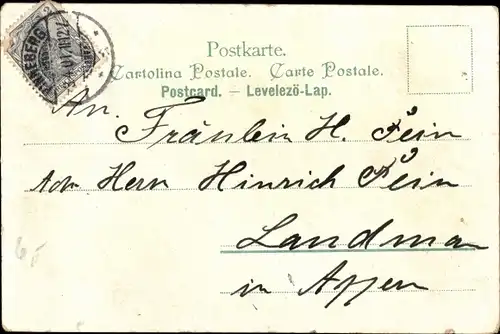 Postkarte.
Cartolina Postale. Carte Postale.
Postcard. – Levelező-Lap.
An.
Fräulein H. Pein
Adr Herrn Hinrich Pein
Landman
in Appen